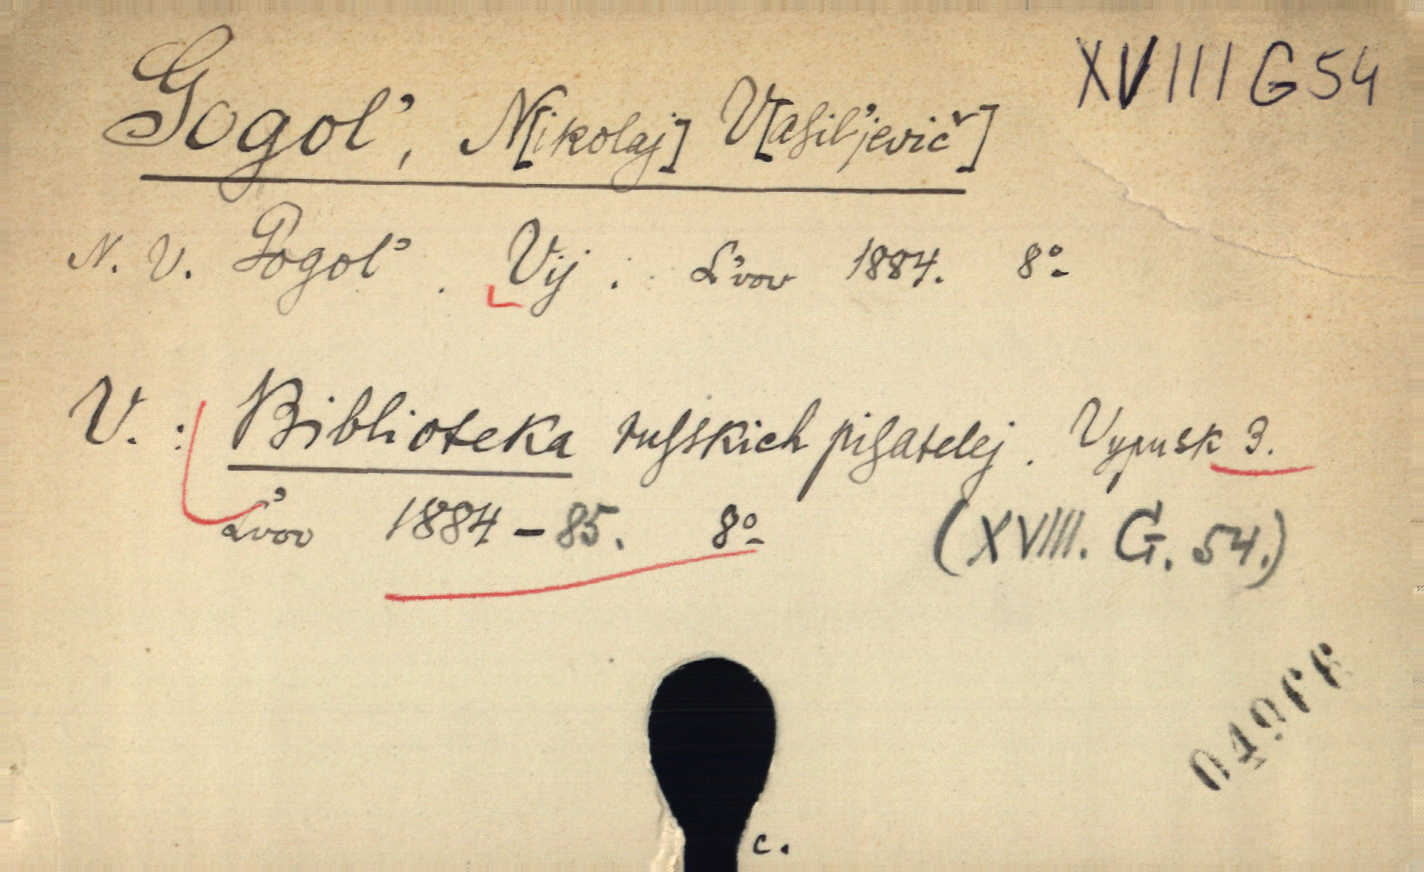 XVIII G 54
Gogol', N[ikolaj] V[asil'jevič]
N. V. Gogol'. Vij. L'vov 1884. 8°
V.: Biblioteka russkich pisatelej. Vypusk 3.
L'vov 1884-85. 8°
(XVIII. G. 54.)
c.